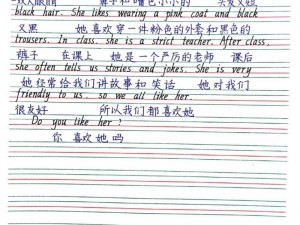 双大眼睛 鼻子和嘴巴小小的 头发又短
black hair. She likes wearing a pink coat and black
又黑 她喜欢穿一件粉色的外套和黑色的
trousers. In class, she is a strict teacher. After class,
裤子 在课上 她是一个严厉的老师 课后
she often tells us stories and jokes. She is very
她经常给我们讲故事和笑话 她对我们
friendly to us. so we all like her.
很友好 所以我们都喜欢她
Do you like her?
你喜欢她吗